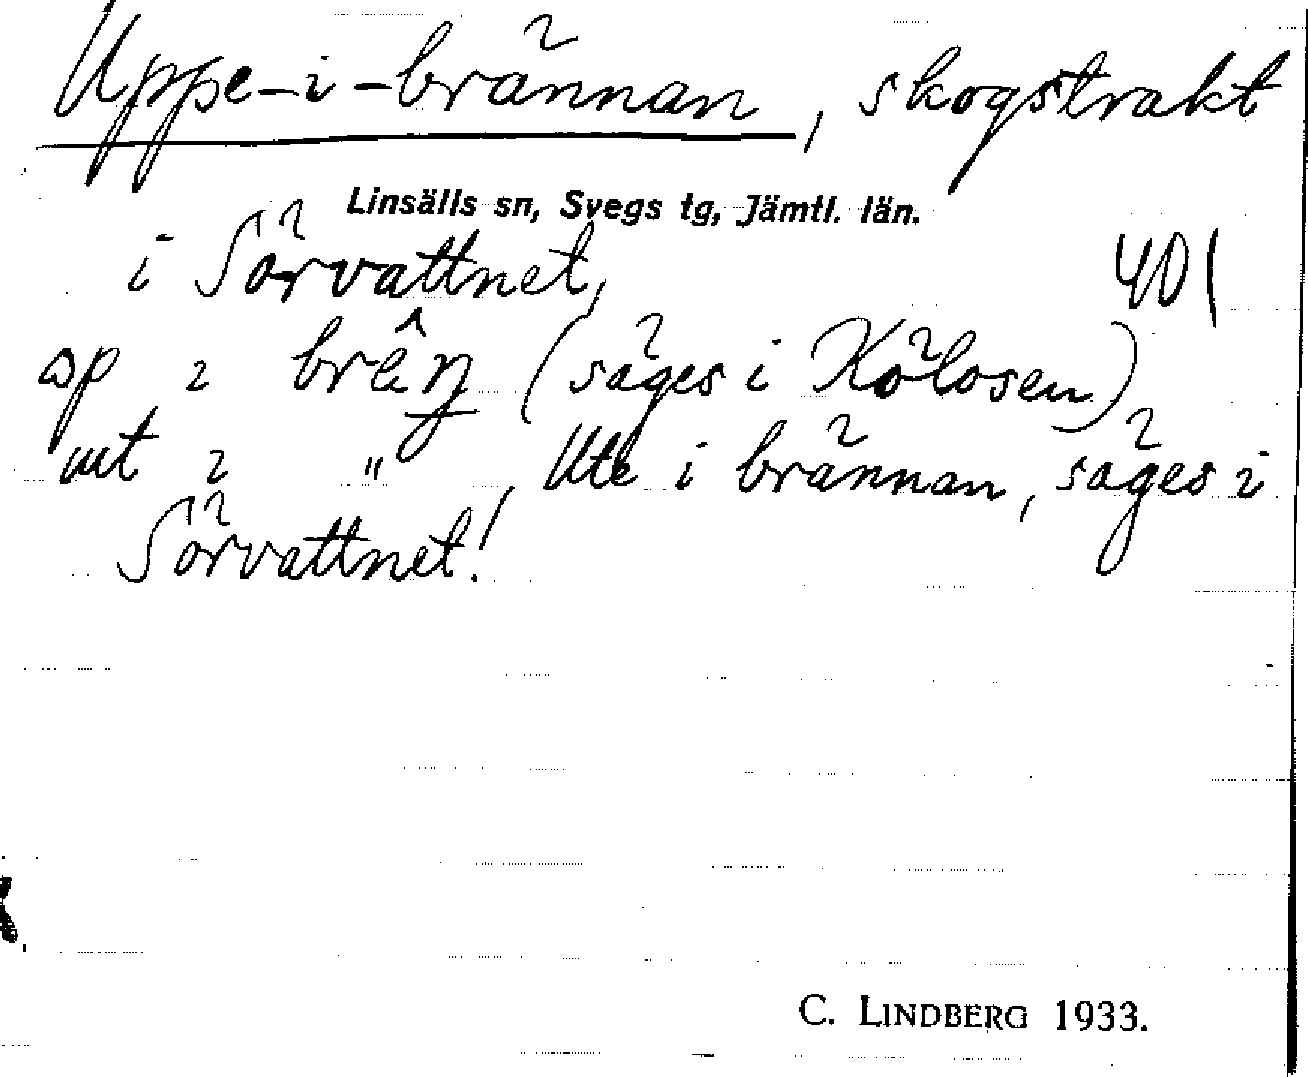 Uppe-i-brännan, skogstrakt
Linsälls sn, Svegs tg, Jämtl. län.
i Sörvattnet, 401
ɷp ı brên̥ (säges i Kölosen)
ut ı " , Ute i brännan, säges i
Sörvattnet!
C. LINDBERG 1933.